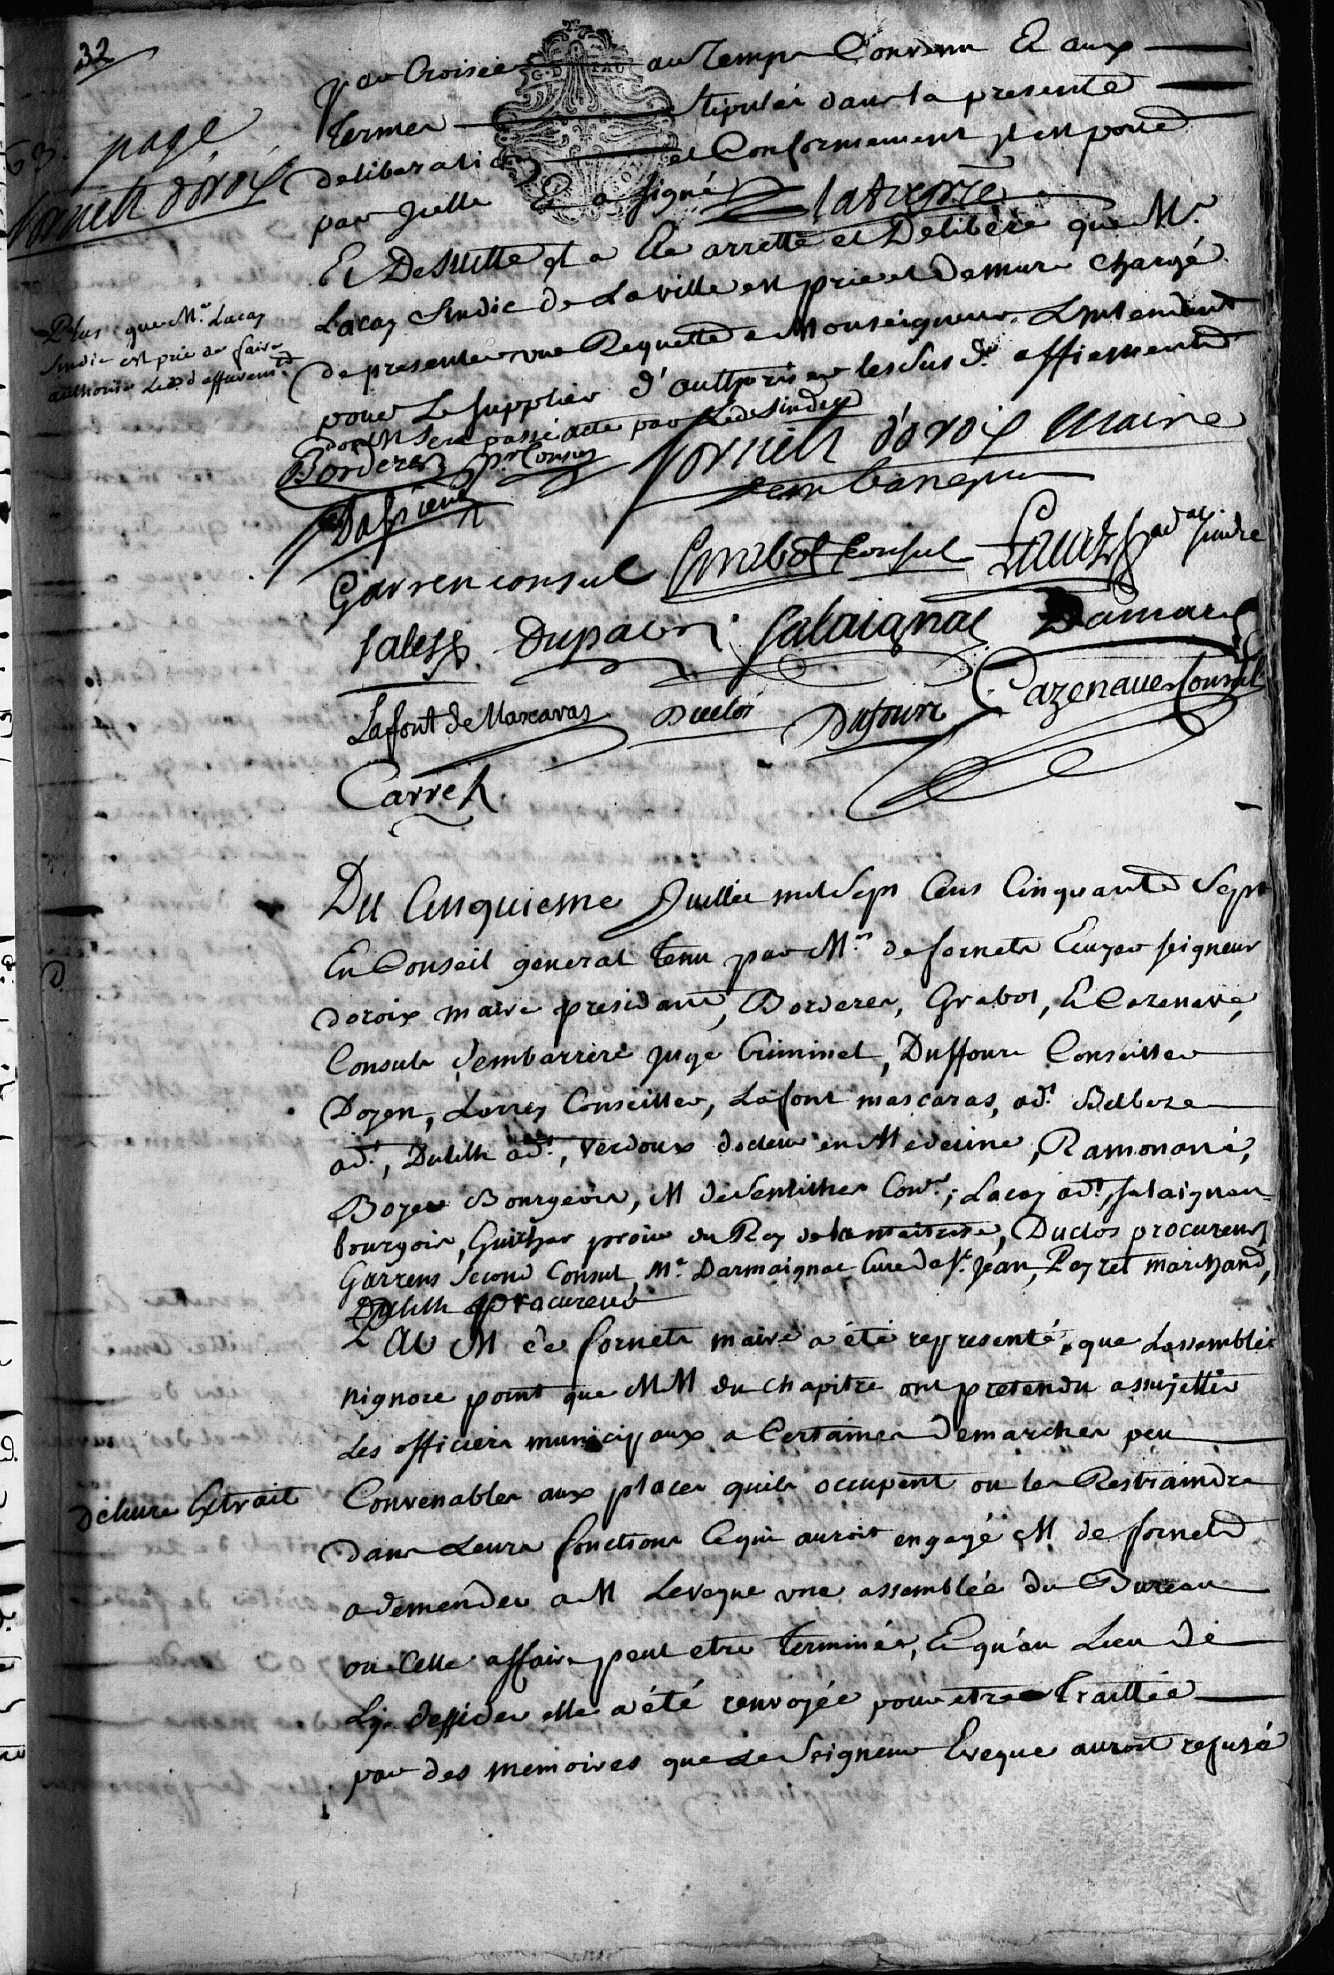 32
63. page
fornets doroix
par Croisée au temps Convenu Et aux
termes stipulés dans la presente
deliberation et Conformement il est porté
par icelle Et a signé
Laturore
Et De suitte il a Ete arretté et Deliberé que Mr
Lacay Sindic de La ville est prié et Demure chargé
de presenter une Requette a Monseigneur Lintendant
pour Le supplier d'authoriser les susd. affiements
dont il sera passé acte par Led. Sindic
Plus que Mr. Lacay
Sindic est prié de faire
authoriser Lesd affiements
Borderes pr. Consul
fornets doroix Maire
Dassieu
Garrens consul Grabot Consul Lacay ad. Sindic
Sales Dupaur Salaignac Damar
Lafont de Mascaras Duclos Dufour Cazenave Consul
Carret
Du Cinquiesme Juillet mil Sept Cens Cinquante Sept
En Conseil general tenu par Mrs de fornets Ecuyer seigneur
doroix maire presidant, Borderes, Grabot, Et Cazenave,
Consuls, Dembarrere Juge Criminel, Duffour Conseiller
Doyen, Larrey Conseiller, Lafont mascaras, ad.t Delbeze
ad.t, Dulilh ad.t, Verdoux docteur en Medecine, Ramonané,
Boyer Bourgeois, M de Sentilhes Con.er, Lacay ad.t, salaignac
bourgois, Guichar procur du Roy de la maitrise, Duclos procureur,
Garrens second Consul, Mr. Darmaignac Curé de St. Jean, Peyret marchand,
Dulilh Procureur
Par M de fornets maire a été representé, que Lassemblée
nignore point que MM du Chapitre ont pretendu assujettir
Les officiers municipaux a Certaines Demarches peu
Convenables aux places quils occupent ou les Restraindre
Délivré Extrait
dans Leurs fonctions Ce qui auroit engagé M. de fornets
a demender a M Leveque une assemblée du Bureau
ou Cette affaire peut etre terminée, Et qu'au Lieu de
L'y dessider elle a été renvoyée pour etre traittée
par des memoires que Le Seigneur Eveque auroit refusé